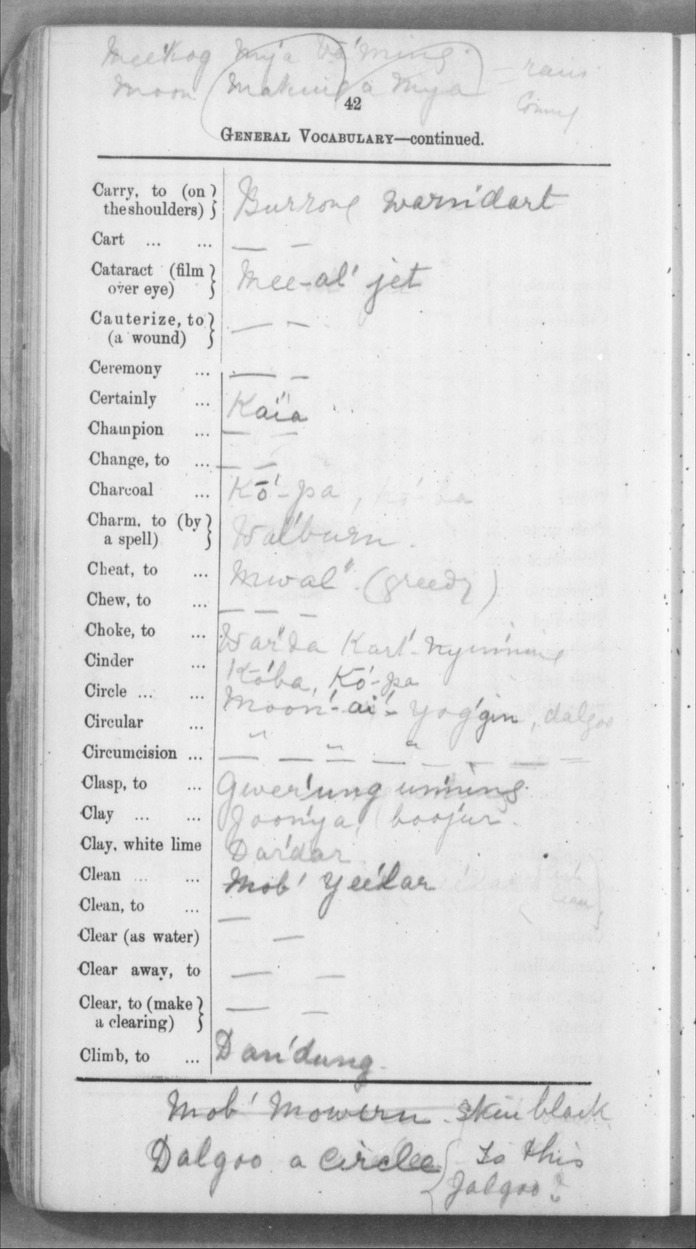 Meekog mya bo'ming = rain
Moon (making a mya) Coming
42
GENERAL VOCABULARY—continued.
Carry, to (on the shoulders) Burrong warn'dart
Cart ... ... — —
Cataract (film over eye) Mee-al' jet
Cauterize, to (a wound) — —
Ceremony ... — —
Certainly ... Kaia
Champion ... — —
Change, to ... — —
Charcoal ... Kō'-pa, kō'-ba
Charm, to (by a spell) Wal'burn.
Cheat, to ... Mwal". (greedy)
Chew, to ... — — —
Choke, to ... War'da Kart'-nyinning
Cinder ... Kō'ba, Kō'-pa
Circle ... ... Moon'-ai'-yog'gin, dalgoo
Circular ... " " "
Circumcision ... — — — — — — —
Clasp, to ... Gwer'ung unning.
Clay ... ... Joonya, boojur.
Clay, white lime Dar'dar
Clean ... ... Mob' yeelar
Clean, to ... —
Clear (as water) —
Clear away, to — —
Clear, to (make a clearing) — —
Climb, to ... Dan'dung.
Mob' Mowern - skin black
Dalgoo a circle { Is this
Jalgoo?